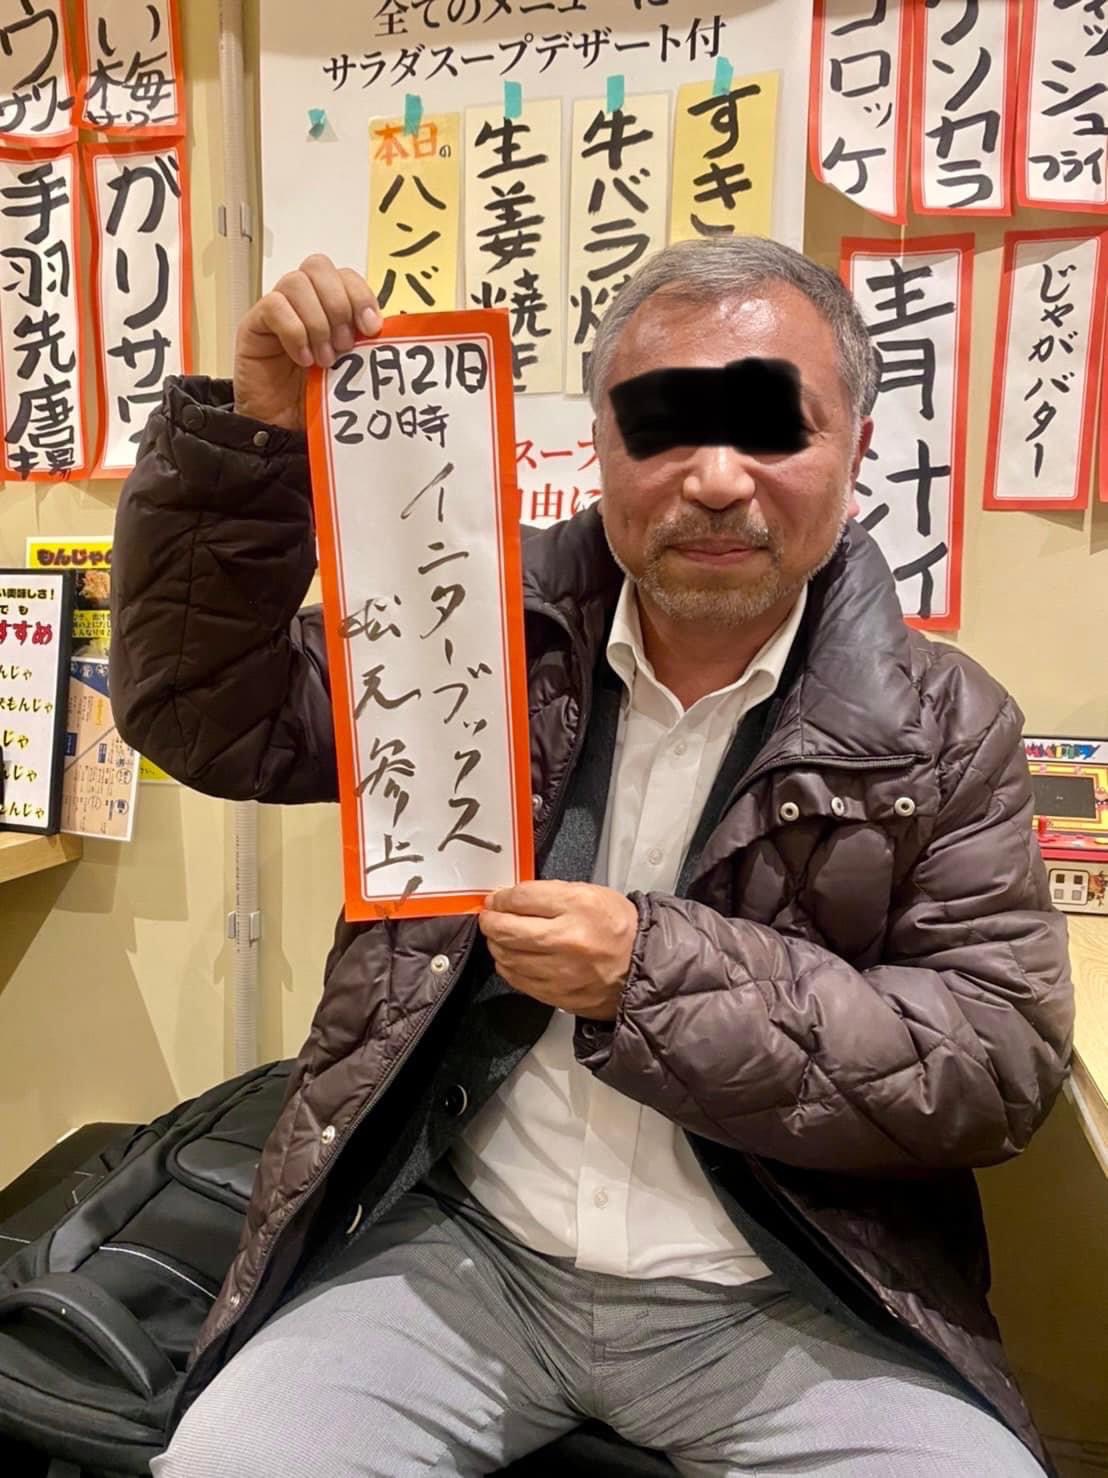 全てのメニューに
サラダスープデザート付
本日の
ハンバ
生姜焼き
牛バラ焼
すき
ウ
サワー
い梅
サワー
手羽先唐揚
ガリサワ
コロッケ
ケンカラ
ッシュ
フライ
青ナイ
じゃがバター
2月21日
20時
インターブックス
松元参上!
スープ
自由に
もんじゃの
い美味しさ!
でも
すすめ
んじゃ
もんじゃ
じゃ
んじゃ
もんじゃ